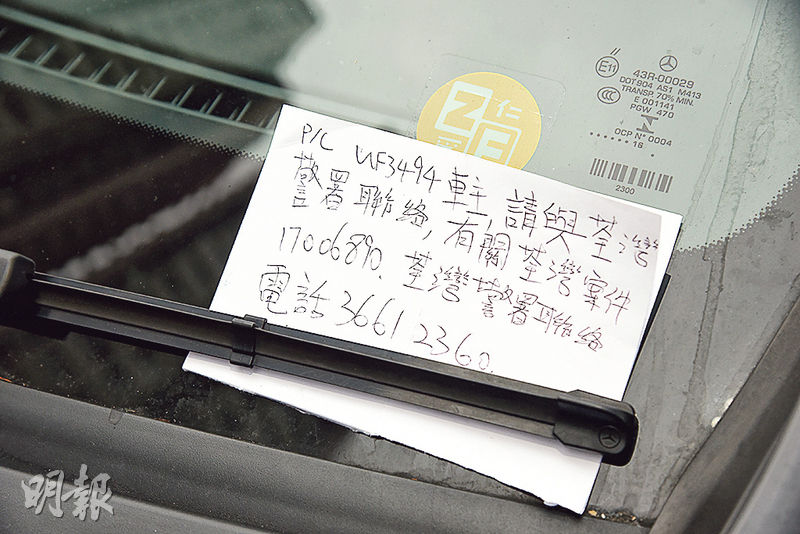 P/C UF3494車主,請與荃灣
警署聯絡,有關荃灣案件
17006890. 荃灣警署聯絡
電話 3661 2360.
仁
Z
E
E11
43R-00029
DOT904 AS1 M413
TRANSP. 70% MIN.
E 001141
PGW 470
CCC
OCP N° 0004
16
2300
明報